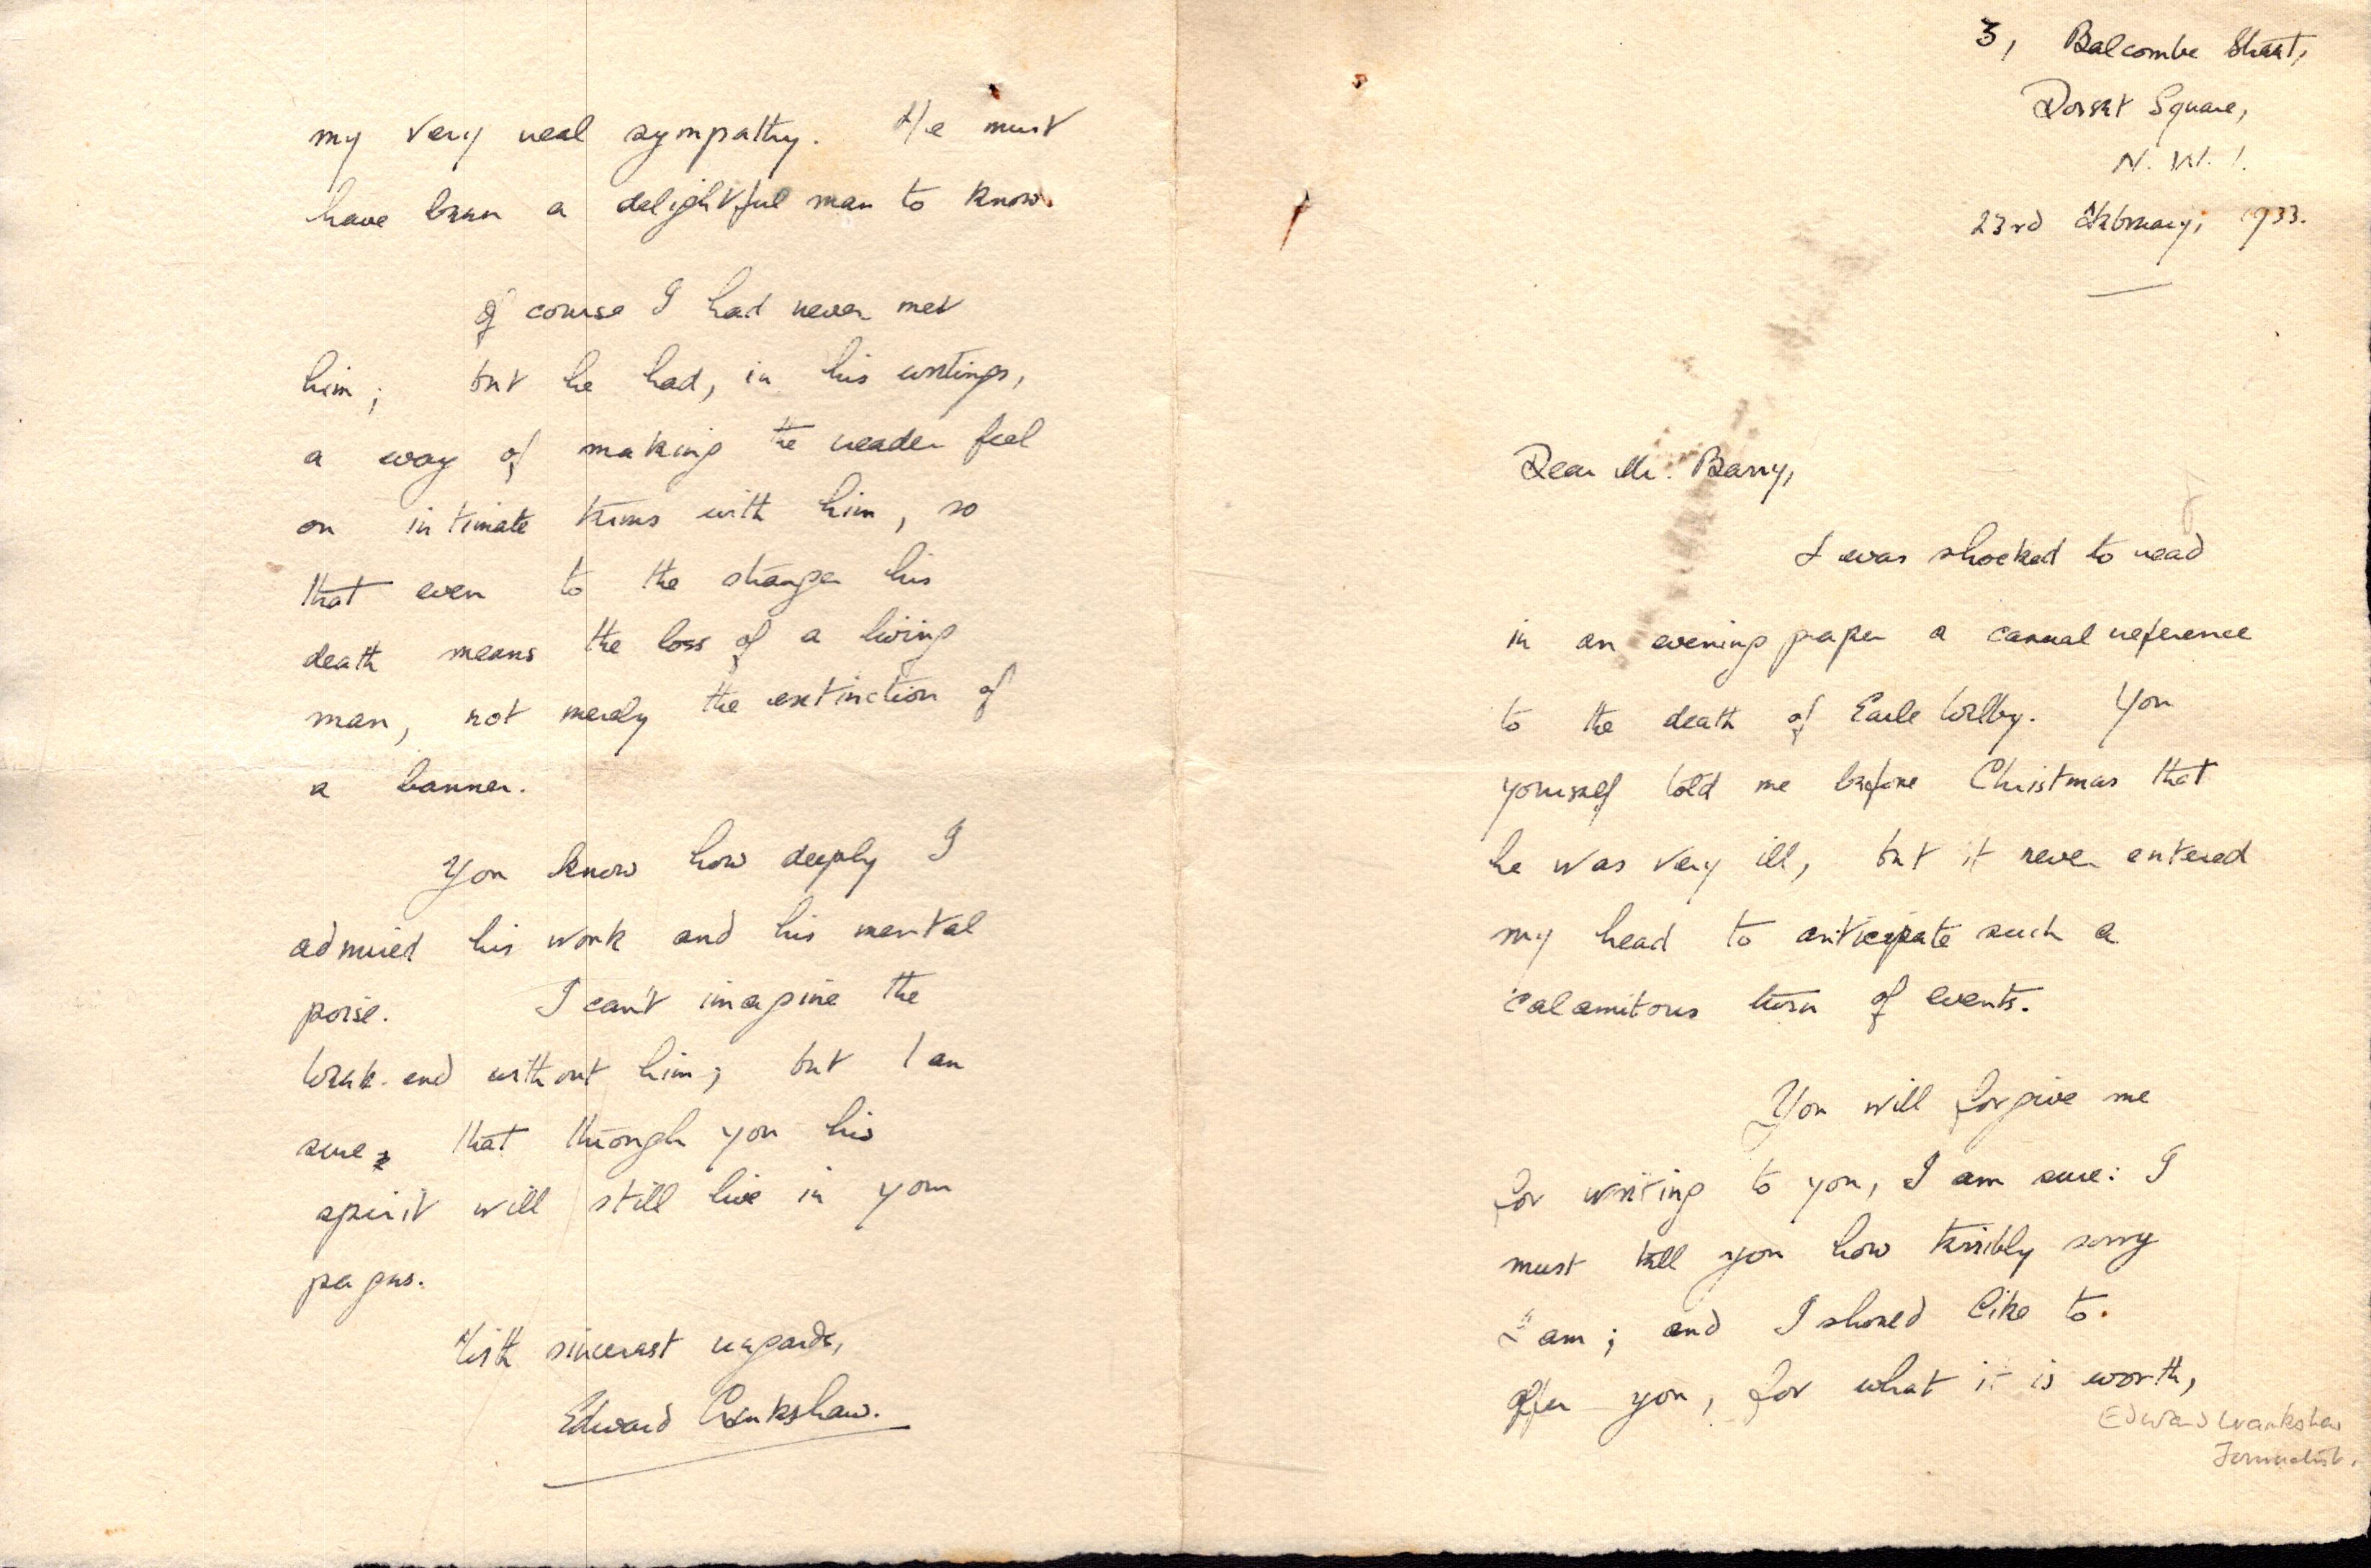 3, Balcombe Street,
Dorset Square,
N.W.1.
23rd February, 1933.
Dear Mr. Barry,
I was shocked to read
in an evening paper a casual reference
to the death of Earle Welby. You
yourself told me before Christmas that
he was very ill, but it never entered
my head to anticipate such a
calamitous turn of events.
You will forgive me
for writing to you, I am sure: I
must tell you how terribly sorry
I am; and I should like to
offer you, for what it is worth,
Edward Crankshaw
Journalist.
my very real sympathy. He must
have been a delightful man to know.
Of course I had never met
him; but he had, in his writings,
a way of making the reader feel
on intimate terms with him, so
that even to the stranger his
death means the loss of a living
man, not merely the extinction of
a banner.
You know how deeply I
admired his work and his mental
poise. I can't imagine the
Week-end without him; but I am
sure that through you his
spirit will still live in your
pages.
With sincerest regards,
Edward Crankshaw.